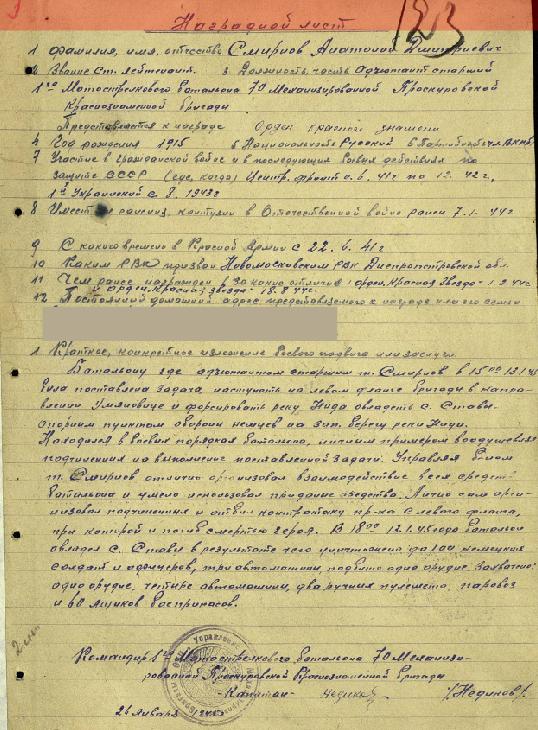 Наградной лист
123
1 Фамилия, имя, отчество Смирнов Анатолий Дмитриевич
2 Звание Ст. лейтенант. 3 Должность, часть Адъютант старший
1го Мотострелкового батальона 70 Механизированной Проскуровской
Краснознаменной бригады
Представляется к награде Орден красного знамени
4 Год рождения 1915 5 Национальность Русский 6 Партийность
7 Участие в гражданской войне и в последующих боевых действиях по
защите СССР (где, когда) Центр. фронт с. 6. 41г по 12. 42г,
1й Украинский с 8. 1943г
8 Имеет ли ранения, контузии в Отечественной войне ранен 7.1.44г
9 С какого времени в Красной Армии с 22.6.41г
10 Каким РВК призван Новомосковским РВК Днепропетровской обл.
11 Чем ранее награжден За какие отличия орден Красная Звезда
орден Красная Звезда
12 Постоянный домашний адрес представляемого к награде или его семьи
1 Краткое, конкретное изложение боевого подвига или заслуги
Батальону где адъютантом старшим т. Смирнов в 15 00
была поставлена задача, наступать на левом фланге бригады в направ-
лении и форсировать реку Нида овладеть с. Ставы
опорным пунктом обороны немцев на зап. берегу реки Нида.
Находился в боевых порядках батальона, личным примером воодушевлял
подчиненных на выполнение поставленной задачи. Управляя боем
т. Смирнов отлично организовал взаимодействие всех средств
батальона и умело использовал приданые средства. Лично сам орга-
низовал подчиненных и отбил контратаку пр-ка с левого фланга,
при которой и погиб смертью героя. В 18 00 12.1.45 года батальон
овладел с. Ставы в результате чего уничтожено до 100 немецких
солдат и офицеров, три автомашины, подбито одно орудие. Захвачено:
одно орудие, четыре автомашины, два ручных пулемета, паровоз
и 60 ящиков боеприпасов.
Командир 1го Мотострелкового батальона 70 Механизи-
рованной Проскуровской Краснознаменной бригады
-Капитан-
26 января 1945